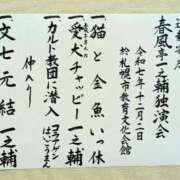 春風亭一之輔独演会
令和七年十二月二日
於札幌市教育文化会館
一 猫と金魚 いっ休
一 愛犬チャッピー 一之輔
一 カルト教団に潜入
仲入り
一 文七元結 一之輔